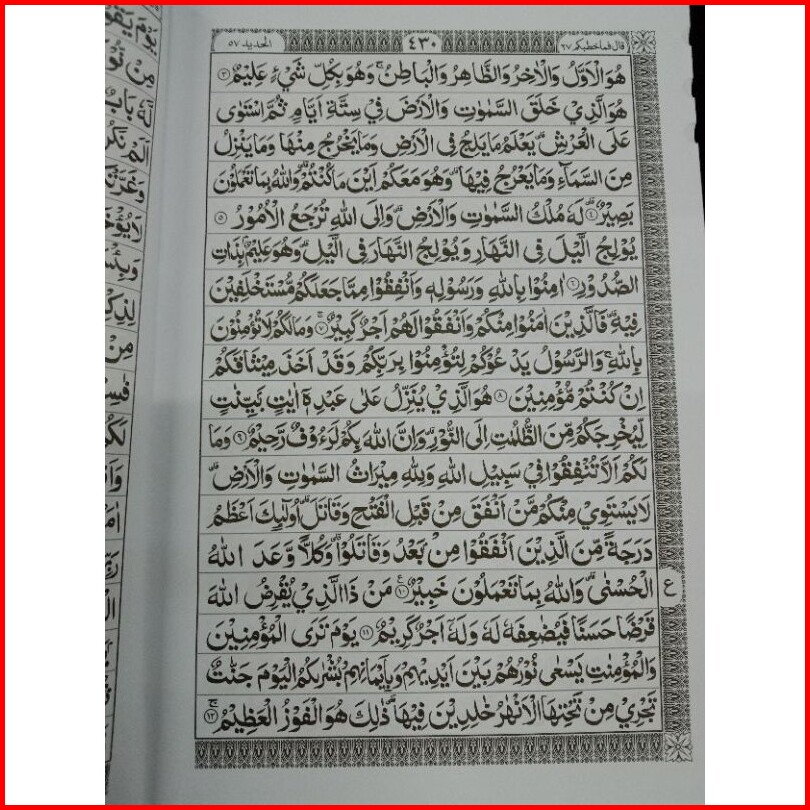 قال فما خطبكم ٢٧ ٤٣٠ الحديد ٥٧
هُوَ الْاَوَّلُ وَالْاٰخِرُ وَالظَّاهِرُ وَالْبَاطِنُ ۚ وَهُوَ بِكُلِّ شَيْءٍ عَلِيْمٌ ٣
هُوَ الَّذِيْ خَلَقَ السَّمٰوٰتِ وَالْاَرْضَ فِيْ سِتَّةِ اَيَّامٍ ثُمَّ اسْتَوٰى
عَلَى الْعَرْشِ ۗ يَعْلَمُ مَا يَلِجُ فِى الْاَرْضِ وَمَا يَخْرُجُ مِنْهَا وَمَا يَنْزِلُ
مِنَ السَّمَآءِ وَمَا يَعْرُجُ فِيْهَا ۗ وَهُوَ مَعَكُمْ اَيْنَ مَا كُنْتُمْ ۗ وَاللّٰهُ بِمَا تَعْمَلُوْنَ
بَصِيْرٌ ۗ ٤ لَهٗ مُلْكُ السَّمٰوٰتِ وَالْاَرْضِ ۗ وَاِلَى اللّٰهِ تُرْجَعُ الْاُمُوْرُ ٥
يُوْلِجُ الَّيْلَ فِى النَّهَارِ وَيُوْلِجُ النَّهَارَ فِى الَّيْلِ ۗ وَهُوَ عَلِيْمٌ ۢ بِذَاتِ
الصُّدُوْرِ ٦ اٰمِنُوْا بِاللّٰهِ وَرَسُوْلِهٖ وَاَنْفِقُوْا مِمَّا جَعَلَكُمْ مُّسْتَخْلَفِيْنَ
فِيْهِ ۗ فَالَّذِيْنَ اٰمَنُوْا مِنْكُمْ وَاَنْفَقُوْا لَهُمْ اَجْرٌ كَبِيْرٌ ۚ ٧ وَمَا لَكُمْ لَا تُؤْمِنُوْنَ
بِاللّٰهِ ۚ وَالرَّسُوْلُ يَدْعُوْكُمْ لِتُؤْمِنُوْا بِرَبِّكُمْ وَقَدْ اَخَذَ مِيْثَاقَكُمْ
اِنْ كُنْتُمْ مُّؤْمِنِيْنَ ٨ هُوَ الَّذِيْ يُنَزِّلُ عَلٰى عَبْدِهٖٓ اٰيٰتٍ ۢ بَيِّنٰتٍ
لِّيُخْرِجَكُمْ مِّنَ الظُّلُمٰتِ اِلَى النُّوْرِ ۗ وَاِنَّ اللّٰهَ بِكُمْ لَرَءُوْفٌ رَّحِيْمٌ ٩ وَمَا
لَكُمْ اَلَّا تُنْفِقُوْا فِيْ سَبِيْلِ اللّٰهِ وَلِلّٰهِ مِيْرَاثُ السَّمٰوٰتِ وَالْاَرْضِ ۗ
لَا يَسْتَوِيْ مِنْكُمْ مَّنْ اَنْفَقَ مِنْ قَبْلِ الْفَتْحِ وَقَاتَلَ ۗ اُولٰۤئِكَ اَعْظَمُ
دَرَجَةً مِّنَ الَّذِيْنَ اَنْفَقُوْا مِنْۢ بَعْدُ وَقَاتَلُوْا ۗ وَكُلًّا وَّعَدَ اللّٰهُ
الْحُسْنٰى ۗ وَاللّٰهُ بِمَا تَعْمَلُوْنَ خَبِيْرٌ ١٠ مَنْ ذَا الَّذِيْ يُقْرِضُ اللّٰهَ
ع
قَرْضًا حَسَنًا فَيُضٰعِفَهٗ لَهٗ وَلَهٗٓ اَجْرٌ كَرِيْمٌ ١١ يَوْمَ تَرَى الْمُؤْمِنِيْنَ
وَالْمُؤْمِنٰتِ يَسْعٰى نُوْرُهُمْ بَيْنَ اَيْدِيْهِمْ وَبِاَيْمَانِهِمْ بُشْرٰىكُمُ الْيَوْمَ جَنّٰتٌ
تَجْرِيْ مِنْ تَحْتِهَا الْاَنْهٰرُ خٰلِدِيْنَ فِيْهَا ۗ ذٰلِكَ هُوَ الْفَوْزُ الْعَظِيْمُ ۚ ١٢